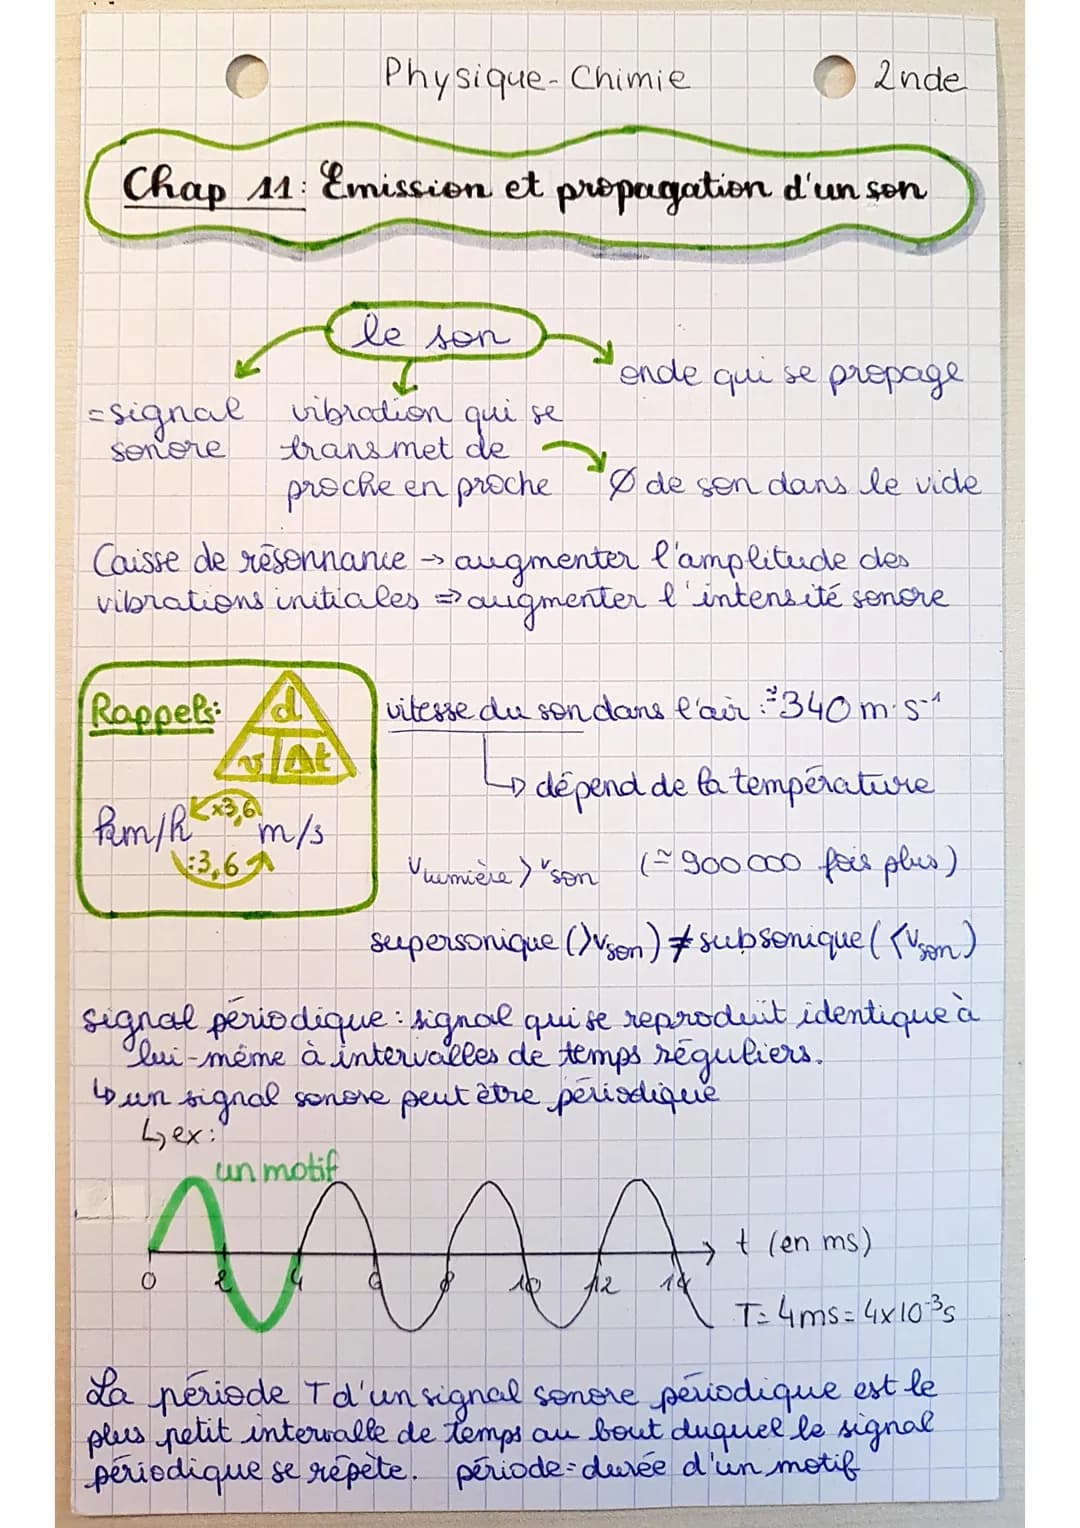 Physique-Chimie
2nde
Chap 11: Emission et propagation d'un son
le son
onde qui se propage
=signal
sonore
vibration qui se
transmet de
proche en proche
Ø de son dans le vide
Caisse de résonnance → augmenter l'amplitude des
vibrations initiales => augmenter l'intensité sonore
Rappels:
d
v | Δt
km/h x3,6 m/s
:3,6
vitesse du son dans l'air : ≃ 340 m·s⁻¹
↳ dépend de la température
Vlumière > Vson (≃ 900 000 fois plus)
supersonique (>Vson) ≠ subsonique (<Vson)
signal périodique : signal qui se reproduit identique à
lui-même à intervalles de temps réguliers.
↳ un signal sonore peut être périodique
↳ ex:
un motif
0 2 4 6 8 10 12 14
t (en ms)
T= 4ms = 4x10⁻³s
La période T d'un signal sonore périodique est le
plus petit intervalle de temps au bout duquel le signal
périodique se répète. période = durée d'un motif